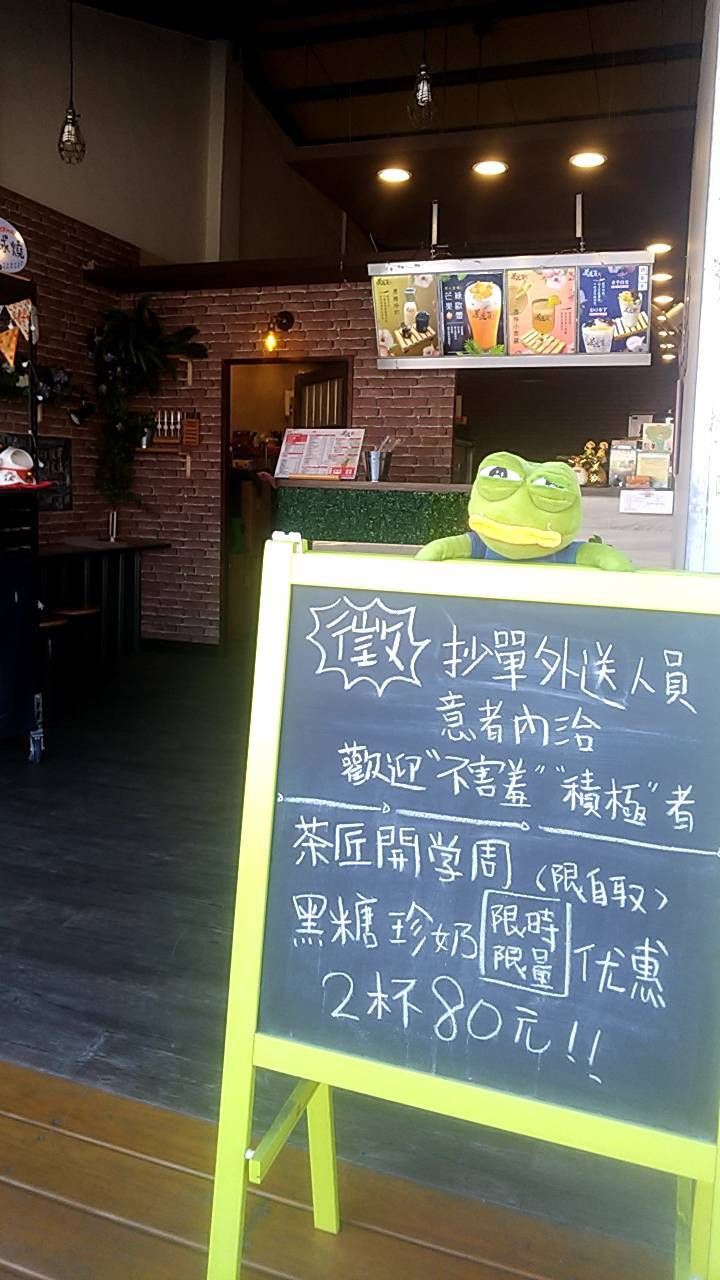 徵 抄單外送人員
意者內洽
歡迎"不害羞""積極"者
茶匠開学周(限自取)
黑糖珍奶 限時限量 优惠
2杯80元!!
芒果綠歐蕾
燒